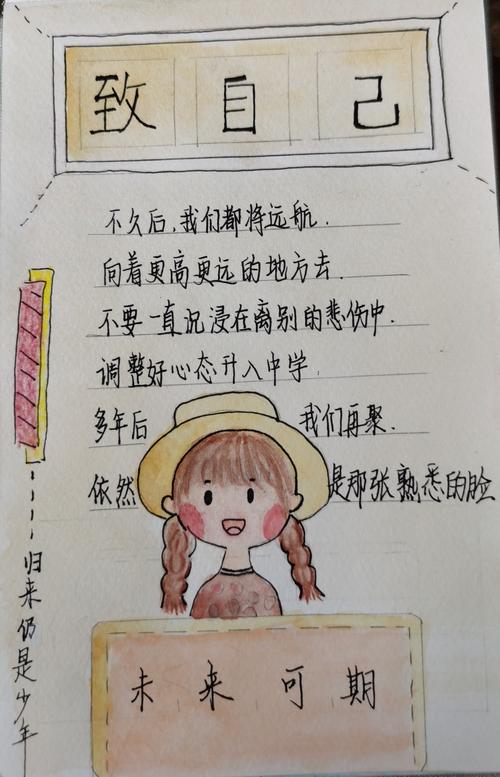 致自己
不久后,我们都将远航.
向着更高更远的地方去.
不要一直沉浸在离别的悲伤中.
调整好心态升入中学,
多年后 我们再聚.
依然 是那张熟悉的脸
归来仍是少年
未来可期